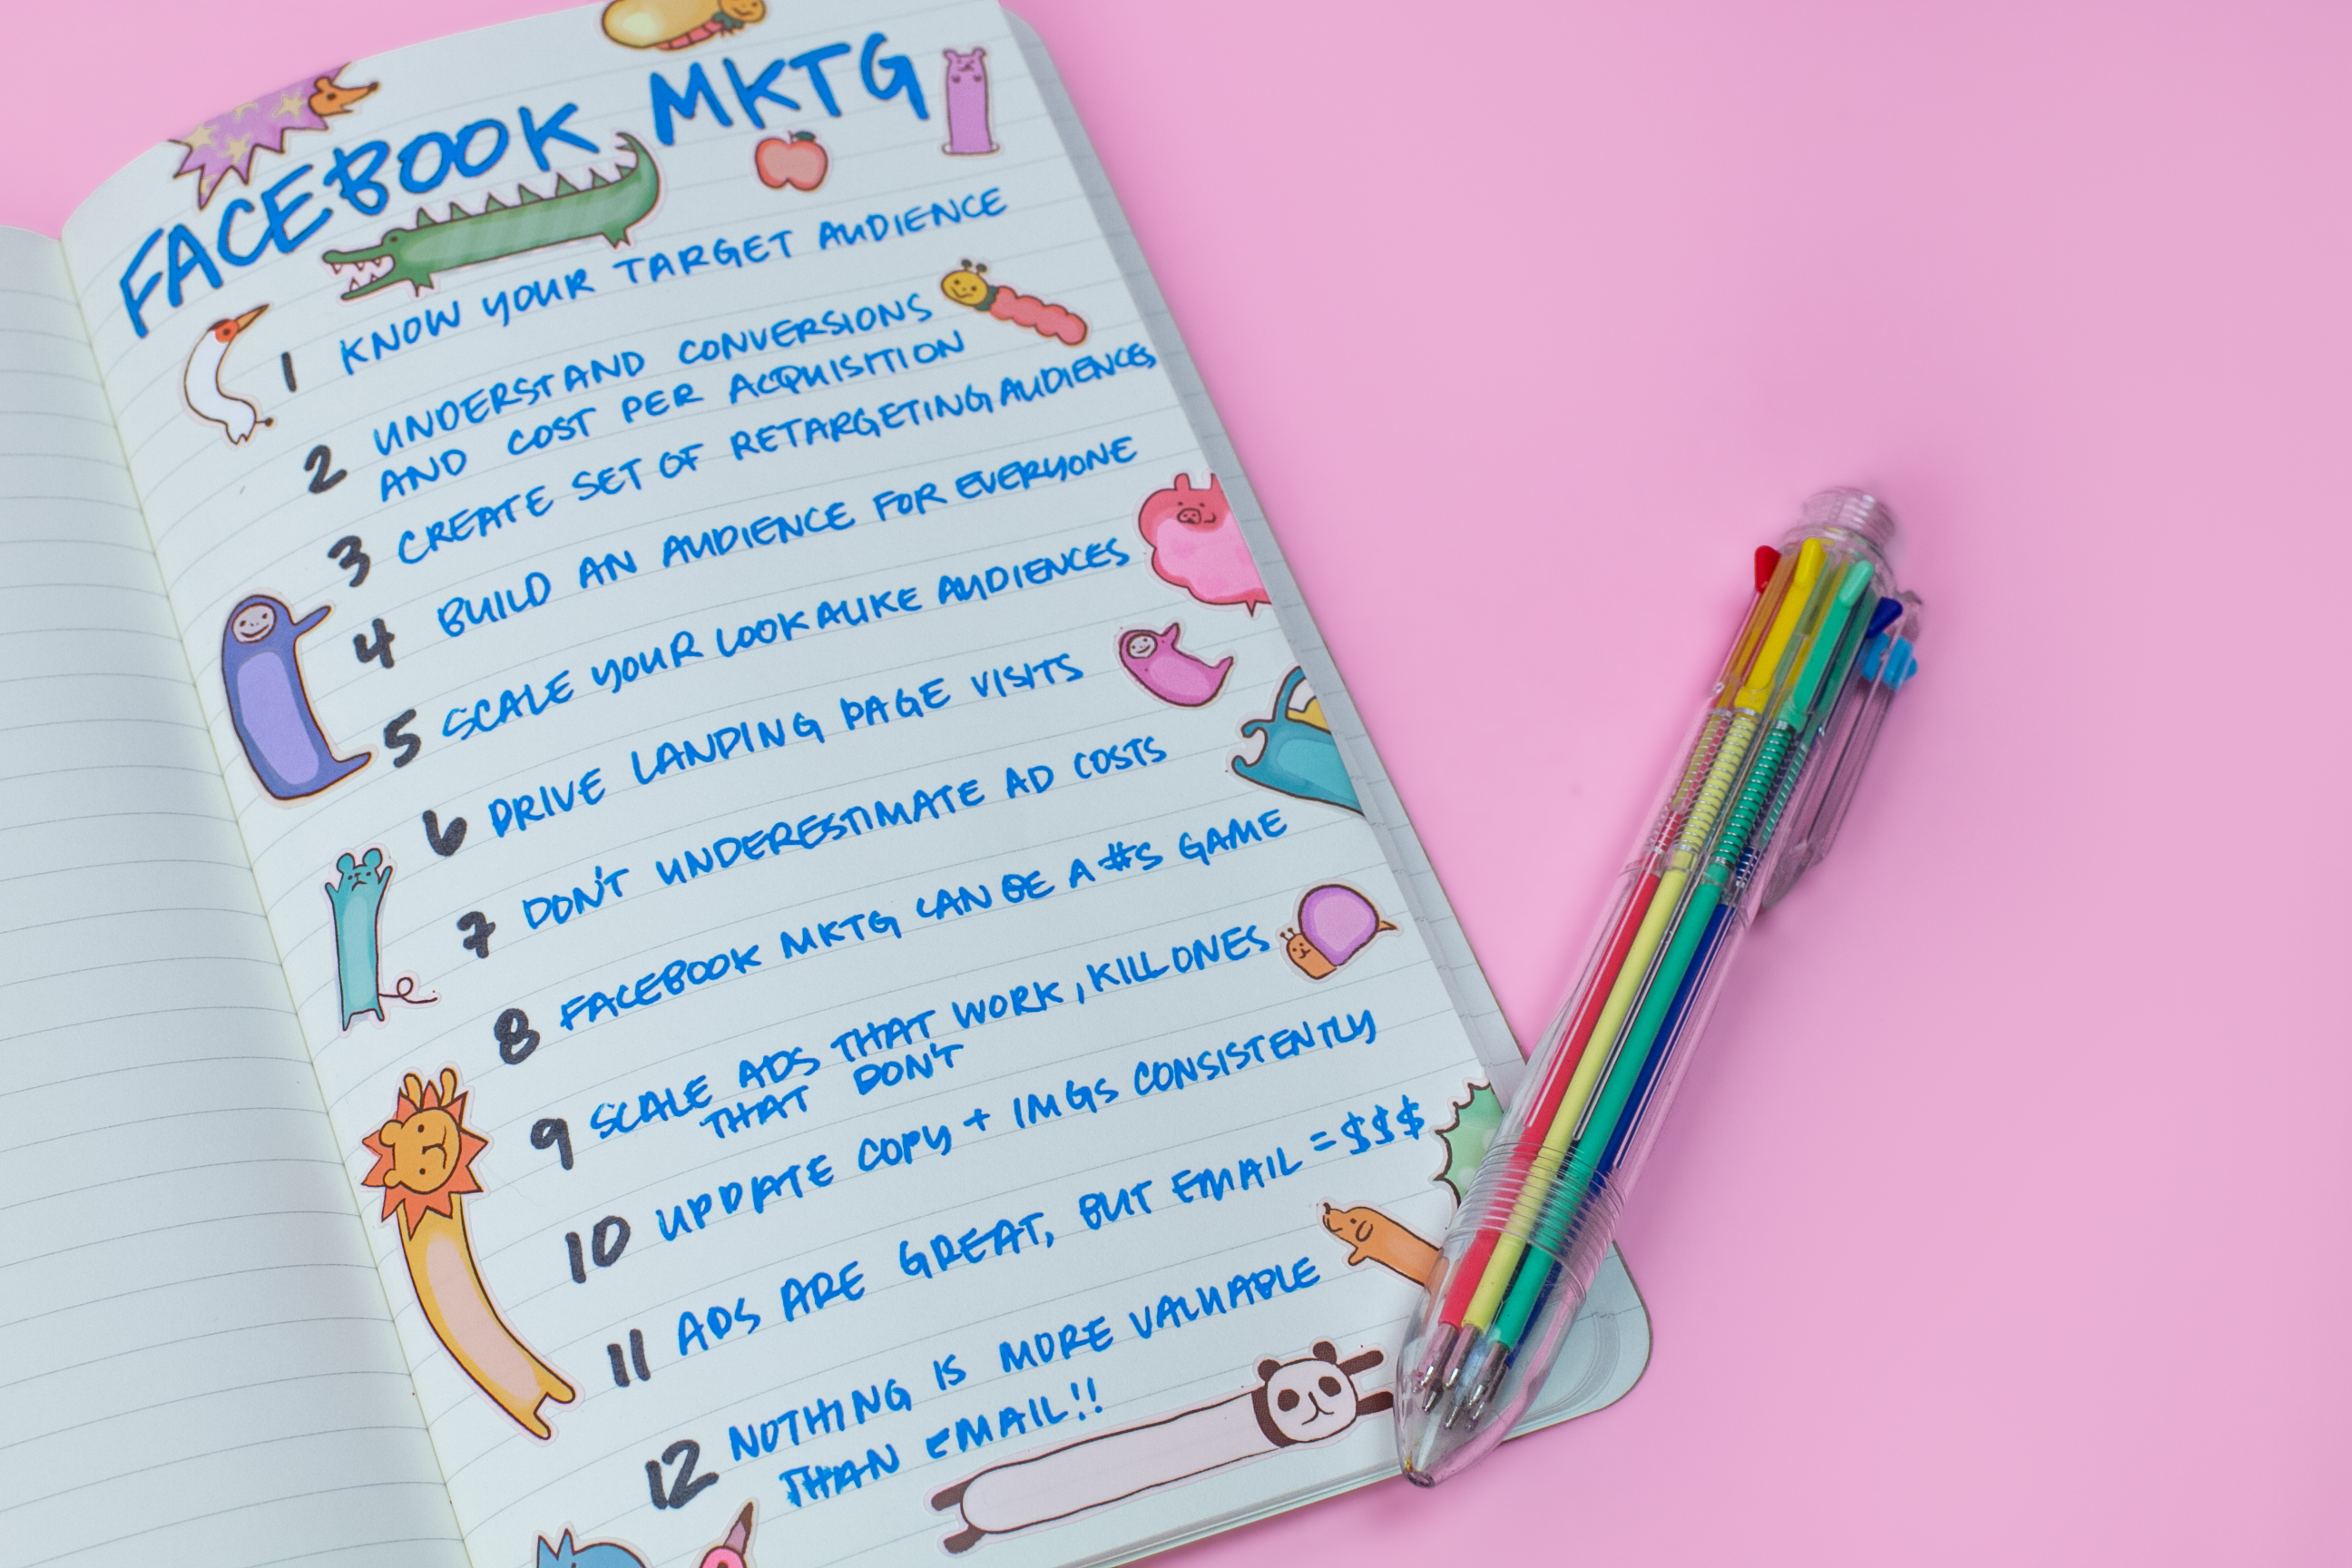 FACEBOOK MKTG
1 KNOW YOUR TARGET AUDIENCE
2 UNDERSTAND CONVERSIONS
AND COST PER ACQUISITION
3 CREATE SET OF RETARGETING AUDIENCES
4 BUILD AN AUDIENCE FOR EVERYONE
5 SCALE YOUR LOOKALIKE AUDIENCES
6 DRIVE LANDING PAGE VISITS
7 DON'T UNDERESTIMATE AD COSTS
8 FACEBOOK MKTG CAN BE A #S GAME
9 SCALE ADS THAT WORK, KILL ONES
THAT DON'T
10 UPDATE COPY + IMGS CONSISTENTLY
11 ADS ARE GREAT, BUT EMAIL = $$$
12 NOTHING IS MORE VALUABLE
THAN EMAIL!!